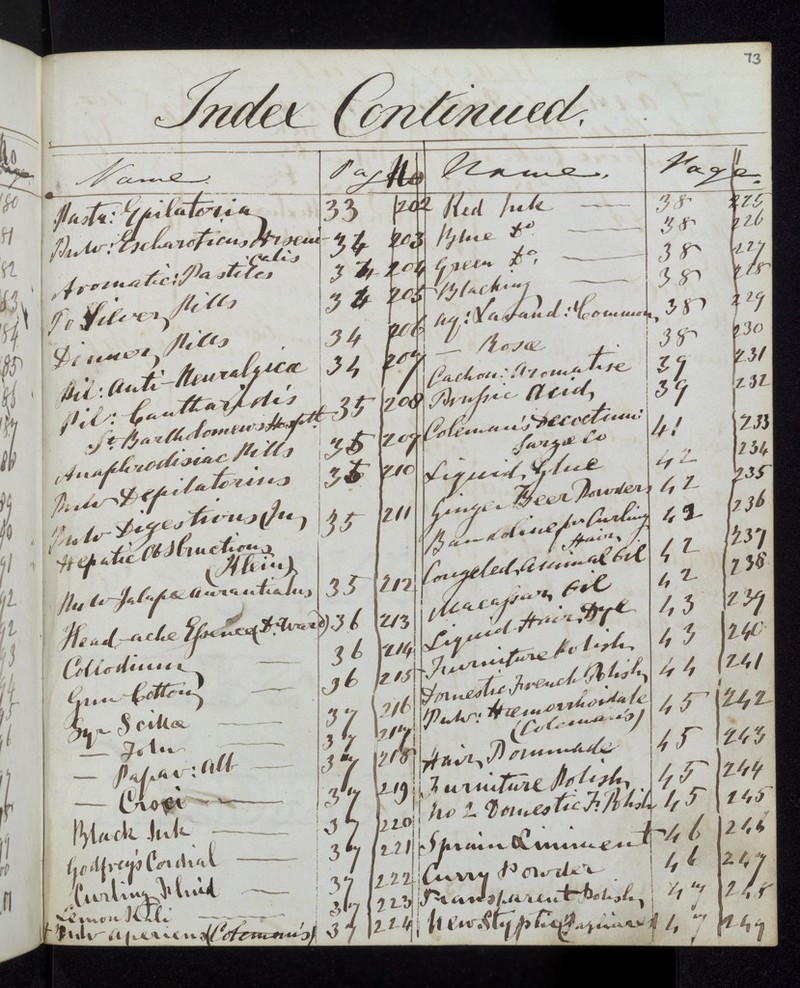 73
Index Continued.
Name. Page No
Pasta: Epilatoria 33 202
Pulv: Escharoticus Arseni- 34 203
calis
Aromatic: Pastiles 34 204
To Silver Pills 34 205
Dinner Pills 34 206
Pil: Anti-Neuralgicæ 34 207
Pil: Cantharidis 35 208
St Bartholomews Hospitl
Anaphrodisiac Pills 35 209
Pulv Depilatorius 35 210
Pulv Digestivus (In 35 211
Hepatic Obstructions
(Klein)
Pulv Jalapæ aurantiatus 35 212
Head-ache Essence (Dr Ward) 36 213
Collodium 36 214
Gun Cotton 36 215
Syr Scillæ 37 216
— Tolu 37 217
— Papav: Alb 37 218
— Croci 37 219
Black Ink 37 220
Godfrey's Cordial 37 221
Curling Fluid 37 222
Lemon Kali 37 223
Pulv aperiens (Coleman's) 37 224
Name. Page.
Red Ink 38 225
Blue Do 38 226
Green Do. 38 227
Blacking 38 228
Aq: Lavand: Common 38 229
— Rosæ 38 230
Cachou: Aromatise 39 231
Prussic Acid 39 232
Coleman's Decoctum 41 233
Sarzæ Co
Liquid Glue 42 234
Ginger Beer Powders 42 235
Bandoline for Curling 42 236
Hair
Congeled Animal Oil 42 237
Macassar Oil 42 238
Liquid Hair Dye 43 239
Furniture Polish 43 240
Domestic French Polish 44 241
Pulv: Hæmorrhoidale 45 242
(Coleman's)
Hair Pommade 45 243
Furniture Polish 45 244
No 2 Domestic F. Polish 45 245
Sprain Liniment 46 246
Curry Powder 46 247
Transparent Polish 47 248
New Styptic 47 249